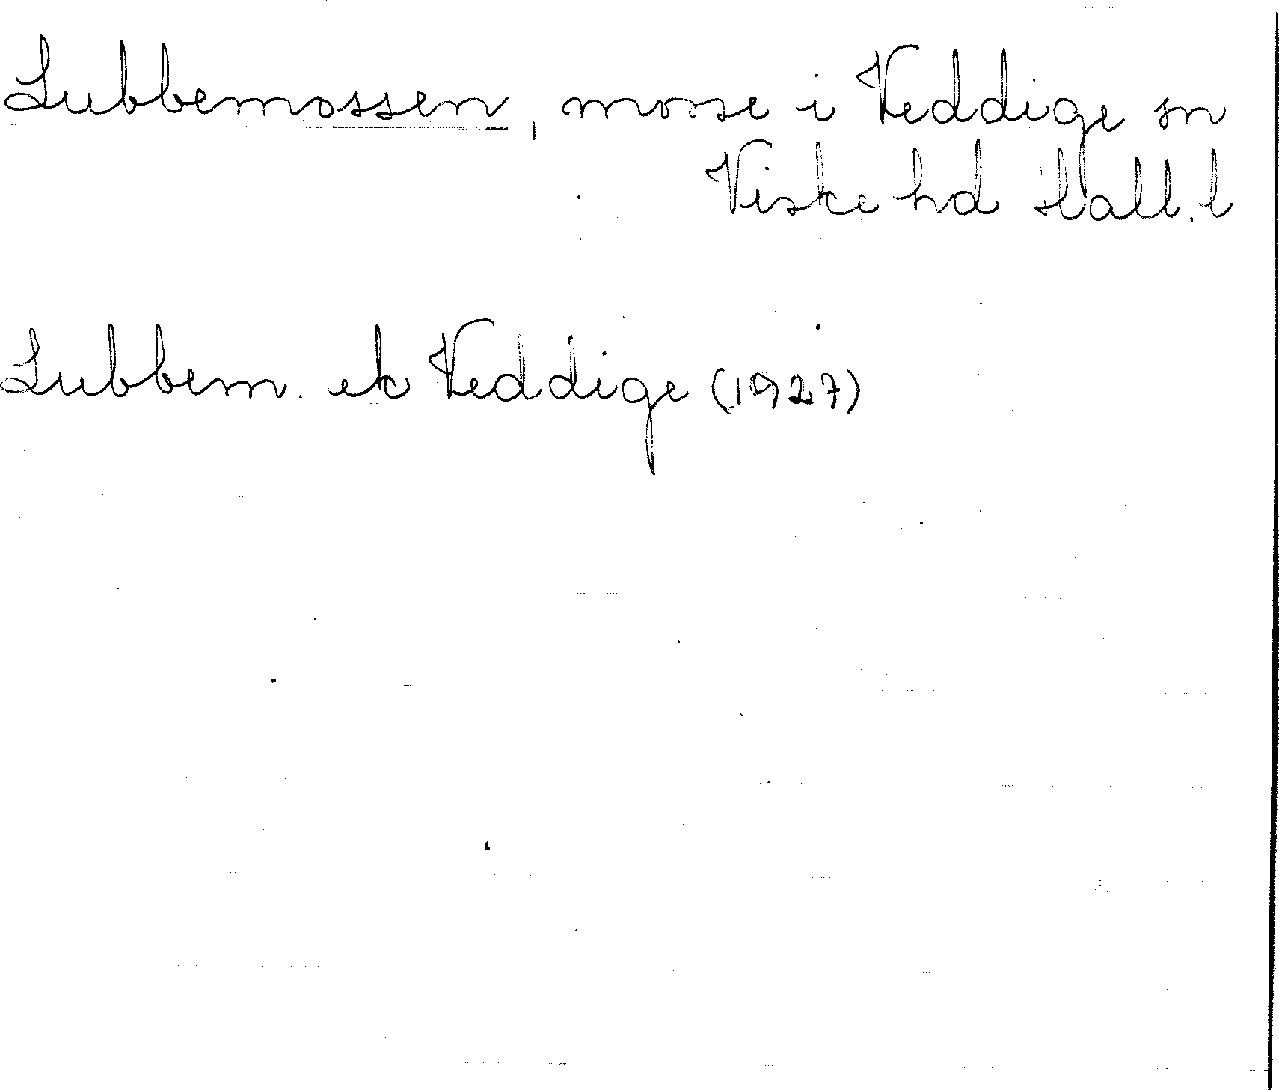 Lubbemossen, mosse i Veddige sn
Viske hd Hall. l
Lubbem. ek Veddige (1927)